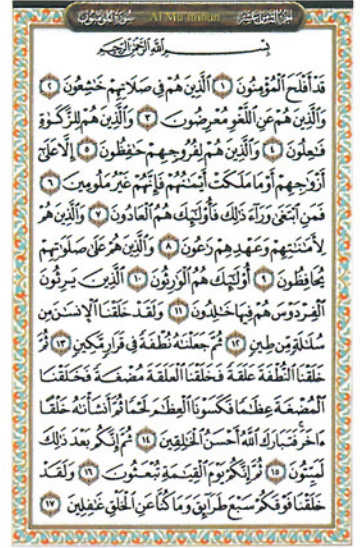 سُورَةُ المُؤْمِنُون Al-Mu'minun الجُزْءُ الثَّامِنَ عَشَر
بِسْمِ اللَّهِ الرَّحْمَٰنِ الرَّحِيمِ
قَدْ أَفْلَحَ الْمُؤْمِنُونَ ١ الَّذِينَ هُمْ فِي صَلَاتِهِمْ خَٰشِعُونَ ٢
وَالَّذِينَ هُمْ عَنِ اللَّغْوِ مُعْرِضُونَ ٣ وَالَّذِينَ هُمْ لِلزَّكَوٰةِ
فَٰعِلُونَ ٤ وَالَّذِينَ هُمْ لِفُرُوجِهِمْ حَٰفِظُونَ ٥ إِلَّا عَلَىٰٓ
أَزْوَٰجِهِمْ أَوْ مَا مَلَكَتْ أَيْمَٰنُهُمْ فَإِنَّهُمْ غَيْرُ مَلُومِينَ ٦
فَمَنِ ابْتَغَىٰ وَرَآءَ ذَٰلِكَ فَأُولَٰٓئِكَ هُمُ الْعَادُونَ ٧ وَالَّذِينَ هُمْ
لِأَمَٰنَٰتِهِمْ وَعَهْدِهِمْ رَٰعُونَ ٨ وَالَّذِينَ هُمْ عَلَىٰ صَلَوَٰتِهِمْ
يُحَافِظُونَ ٩ أُولَٰٓئِكَ هُمُ الْوَٰرِثُونَ ١٠ الَّذِينَ يَرِثُونَ
الْفِرْدَوْسَ هُمْ فِيهَا خَٰلِدُونَ ١١ وَلَقَدْ خَلَقْنَا الْإِنسَٰنَ مِن
سُلَٰلَةٍ مِّن طِينٍ ١٢ ثُمَّ جَعَلْنَٰهُ نُطْفَةً فِي قَرَارٍ مَّكِينٍ ١٣ ثُمَّ
خَلَقْنَا النُّطْفَةَ عَلَقَةً فَخَلَقْنَا الْعَلَقَةَ مُضْغَةً فَخَلَقْنَا
الْمُضْغَةَ عِظَٰمًا فَكَسَوْنَا الْعِظَٰمَ لَحْمًا ثُمَّ أَنشَأْنَٰهُ خَلْقًا
ءَاخَرَ فَتَبَارَكَ اللَّهُ أَحْسَنُ الْخَٰلِقِينَ ١٤ ثُمَّ إِنَّكُم بَعْدَ ذَٰلِكَ
لَمَيِّتُونَ ١٥ ثُمَّ إِنَّكُمْ يَوْمَ الْقِيَٰمَةِ تُبْعَثُونَ ١٦ وَلَقَدْ
خَلَقْنَا فَوْقَكُمْ سَبْعَ طَرَآئِقَ وَمَا كُنَّا عَنِ الْخَلْقِ غَٰفِلِينَ ١٧